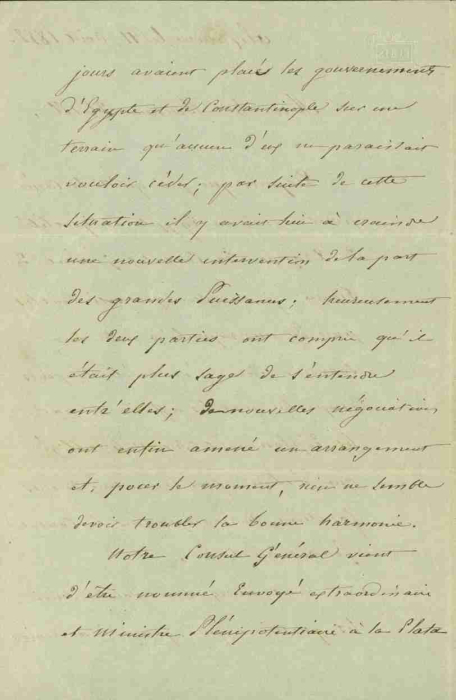 jours avaient placés les gouvernements
d'Egypte et de Constantinople sur un
terrain qu'aucun d'eux ne paraissait
vouloir céder; par suite de cette
situation il y avait lieu à craindre
une nouvelle intervention de la part
des grandes Puissances; heureusement
les deux parties ont compris qu'il
était plus sage de s'entendre
entr'elles; de nouvelles négociations
ont enfin amené un arrangement
et, pour le moment, rien ne semble
devoir troubler la bonne harmonie.
Notre Consul Général vient
d'être nommé Envoyé extraordinaire
et Ministre Plénipotentiaire à la Plata